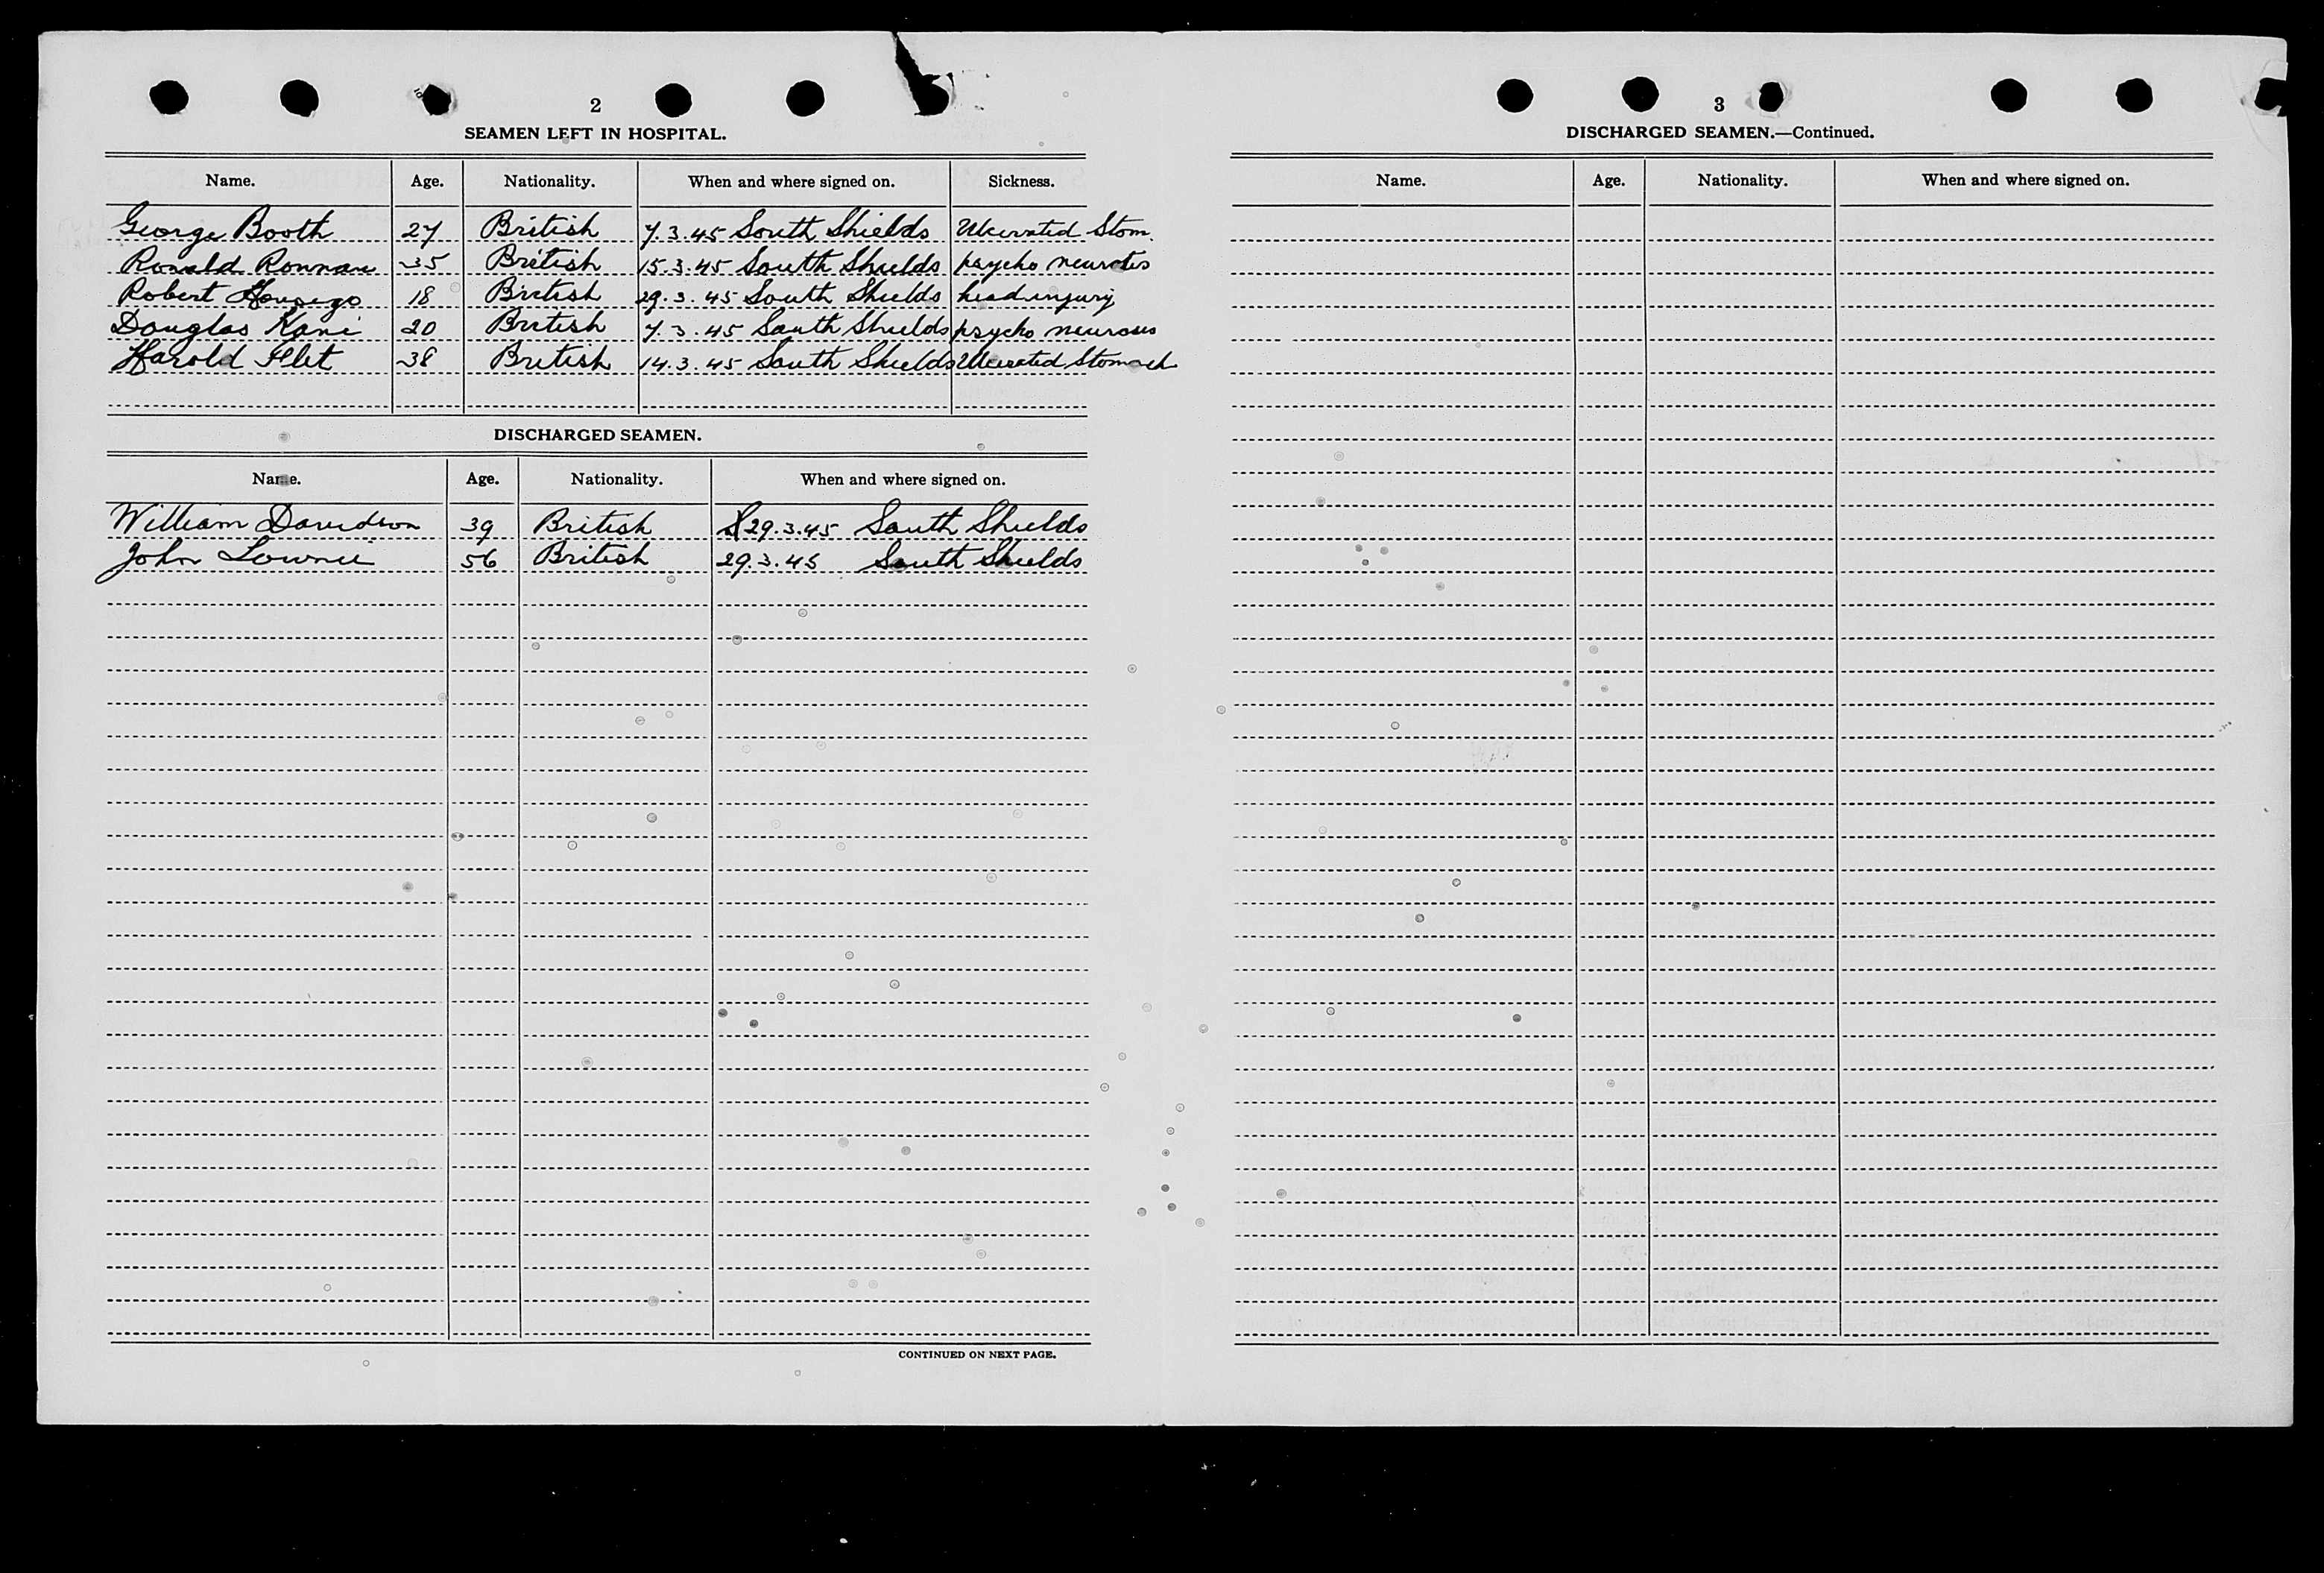 2
SEAMEN LEFT IN HOSPITAL.
Name. Age. Nationality. When and where signed on. Sickness.
George Booth 27 British 7.3.45 South Shields Ulcerated Stom.
Ronald Ronnan 35 British 15.3.45 South Shields psycho neurotis
Robert 18 British 29.3.45 South Shields head injury
Douglas Kane 20 British 7.3.45 South Shields psycho neurosis
Harold Flet 38 British 14.3.45 South Shields Ulcerated Stomach
DISCHARGED SEAMEN.
Name. Age. Nationality. When and where signed on.
William Davidson 39 British 29.3.45 South Shields
John Lownie 56 British 29.3.45 South Shields
CONTINUED ON NEXT PAGE.
3
DISCHARGED SEAMEN.—Continued.
Name. Age. Nationality. When and where signed on.